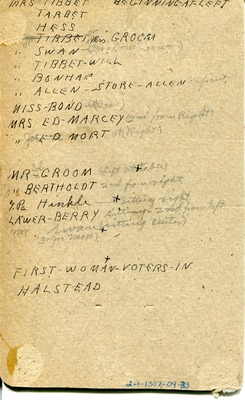 MRS TIBBET BEGINNING-AT-LEFT
" TARBET
" HESS
" TIBBET in GROOM
" SWAN
" TIBBET-WILL
" BONHAM
" ALLEN-STORE-ALLEN
MISS-BOND
MRS ED-MARCEY from Right)
" ED MORT Right)
MR-GROOM (Left at table)
" BERTHOLDT 2nd from right
Hinkle sitting right
LAWER-BERRY sitting 2nd from left
Mr Swan (sitting Center)
FIRST-WOMAN-VOTERS-IN
HALSTEAD
2-1-1307-09-33